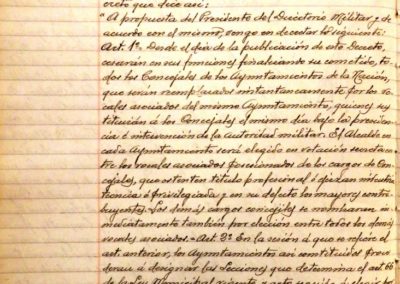 creto que dice así:
"A propuesta del Presidente del Directorio Militar y de
acuerdo con el mismo, vengo en decretar lo siguiente:
Art. 1º. Desde el día de la publicación de este Decreto,
cesarán en sus funciones finalizando su cometido, to-
dos los Concejales de los Ayuntamientos de la Nación,
que serán reemplazados instantaneamente por los vo-
cales asociados del mismo Ayuntamiento, quienes su
titución á los Concejales el mismo día bajo la presiden
cia é intervención de la Autoridad militar. El Alcalde en
cada Ayuntamiento será elegido en votación secreta en
tre los vocales asociados posesionados de los cargos de Con
cejales, que ostenten título profesional ó ejerzan industria
técnica ó privilegiada y en su defecto los mayores contri
buyentes. Los demás cargos concejiles se nombrarán in
mediatamente también por elección entre todos los
vocales asociados.- Art. 2º En la sesión á que se refiere el
art. anterior, los Ayuntamientos así constituidos proce
derán á designar las secciones que determina el art. 66
de la Ley Municipal vigente